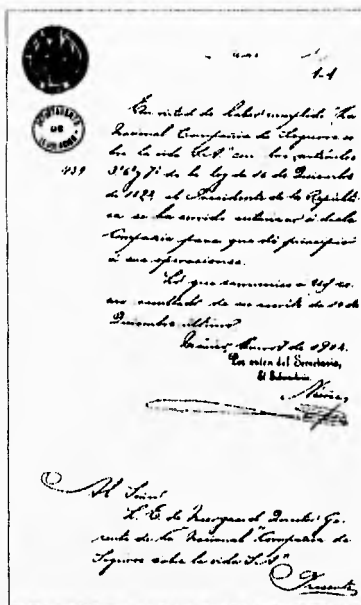 1-1
DEPARTAMENTO
DE
En virtud de haber cumplido "La
Nacional Compañía de Seguros so
bre la vida S.A." con los artículos
3° 6° y 7° de la ley de 16 de Diciembre
de 1892 el Presidente de la Repúbli
ca se ha servido autorizar á dicha
Compañía para que dé principio
á sus operaciones.
Lo que comunico a Ud. co
mo resultado de su escrito de
Diciembre último
México, Enero 7 de 1902.
Por orden del Secretario,
El Subsecretario.
Núñez
Al Señor
L. E. de Gerente
de la "Nacional" Compañía de
Seguros sobre la vida S.A."
Presente